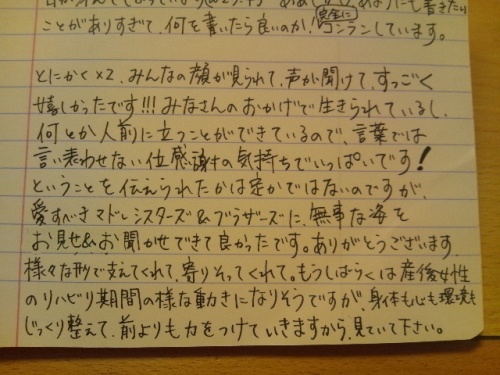 ことがありすぎて、何を書いたら良いのか、完全にコンランしています。
とにかく×2、みんなの顔が見られて、声が聞けて、すっごく
嬉しかったです!!! みなさんのおかげで生きられているし、
何とか人前に立つことができているので、言葉では
言い表わせない位感謝の気持ちでいっぱいです!
ということを伝えられたかは定かではないのですが、
愛すべきマドレシスターズ&ブラザーズに、無事な姿を
お見せ&お聞かせできて良かったです。ありがとうございます。
様々な形で支えてくれて、寄りそってくれて。もうしばらくは産後女性
のリハビリ期間の様な動きになりそうですが、身体も心も環境も
じっくり整えて、前よりも力をつけていきますから、見ていて下さい。